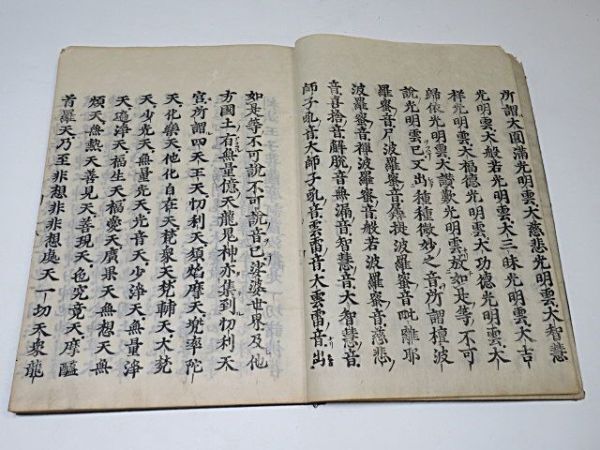 所謂大圓滿光明雲大慈悲光明雲大智慧
光明雲大般若光明雲大三昧光明雲大吉
祥光明雲大福德光明雲大功德光明雲大
歸依光明雲大讚歎光明雲放如是等不可
說光明雲已又出種種微妙之音所謂檀波
羅蜜音尸波羅蜜音羼提波羅蜜音毗離耶
波羅蜜音禪波羅蜜音般若波羅蜜音慈悲
音喜捨音解脫音無漏音智慧音大智慧音
師子吼音大師子吼音雲雷音大雲雷音出
如是等不可說不可說音已娑婆世界及他
方國土有無量億天龍鬼神亦集到忉利天
宮所謂四天王天忉利天須焰摩天兜率陀
天化樂天他化自在天梵衆天梵輔天大梵
天少光天無量光天光音天少淨天無量淨
天遍淨天福生天福愛天廣果天無想天無
煩天無熱天善見天善現天色究竟天摩醯
首羅天乃至非想非非想處天一切天衆龍